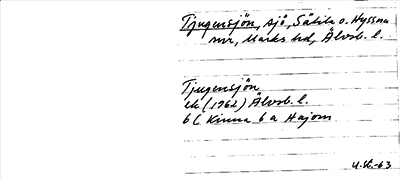 Tjugensjön, sjö, Sätila o. Hyssna
snr, Marks hd, Älvsb. l.
Tjugensjön
ek (1962) Älvsb. l.
6 C Kinna 6 a Hajom
U.St.-63